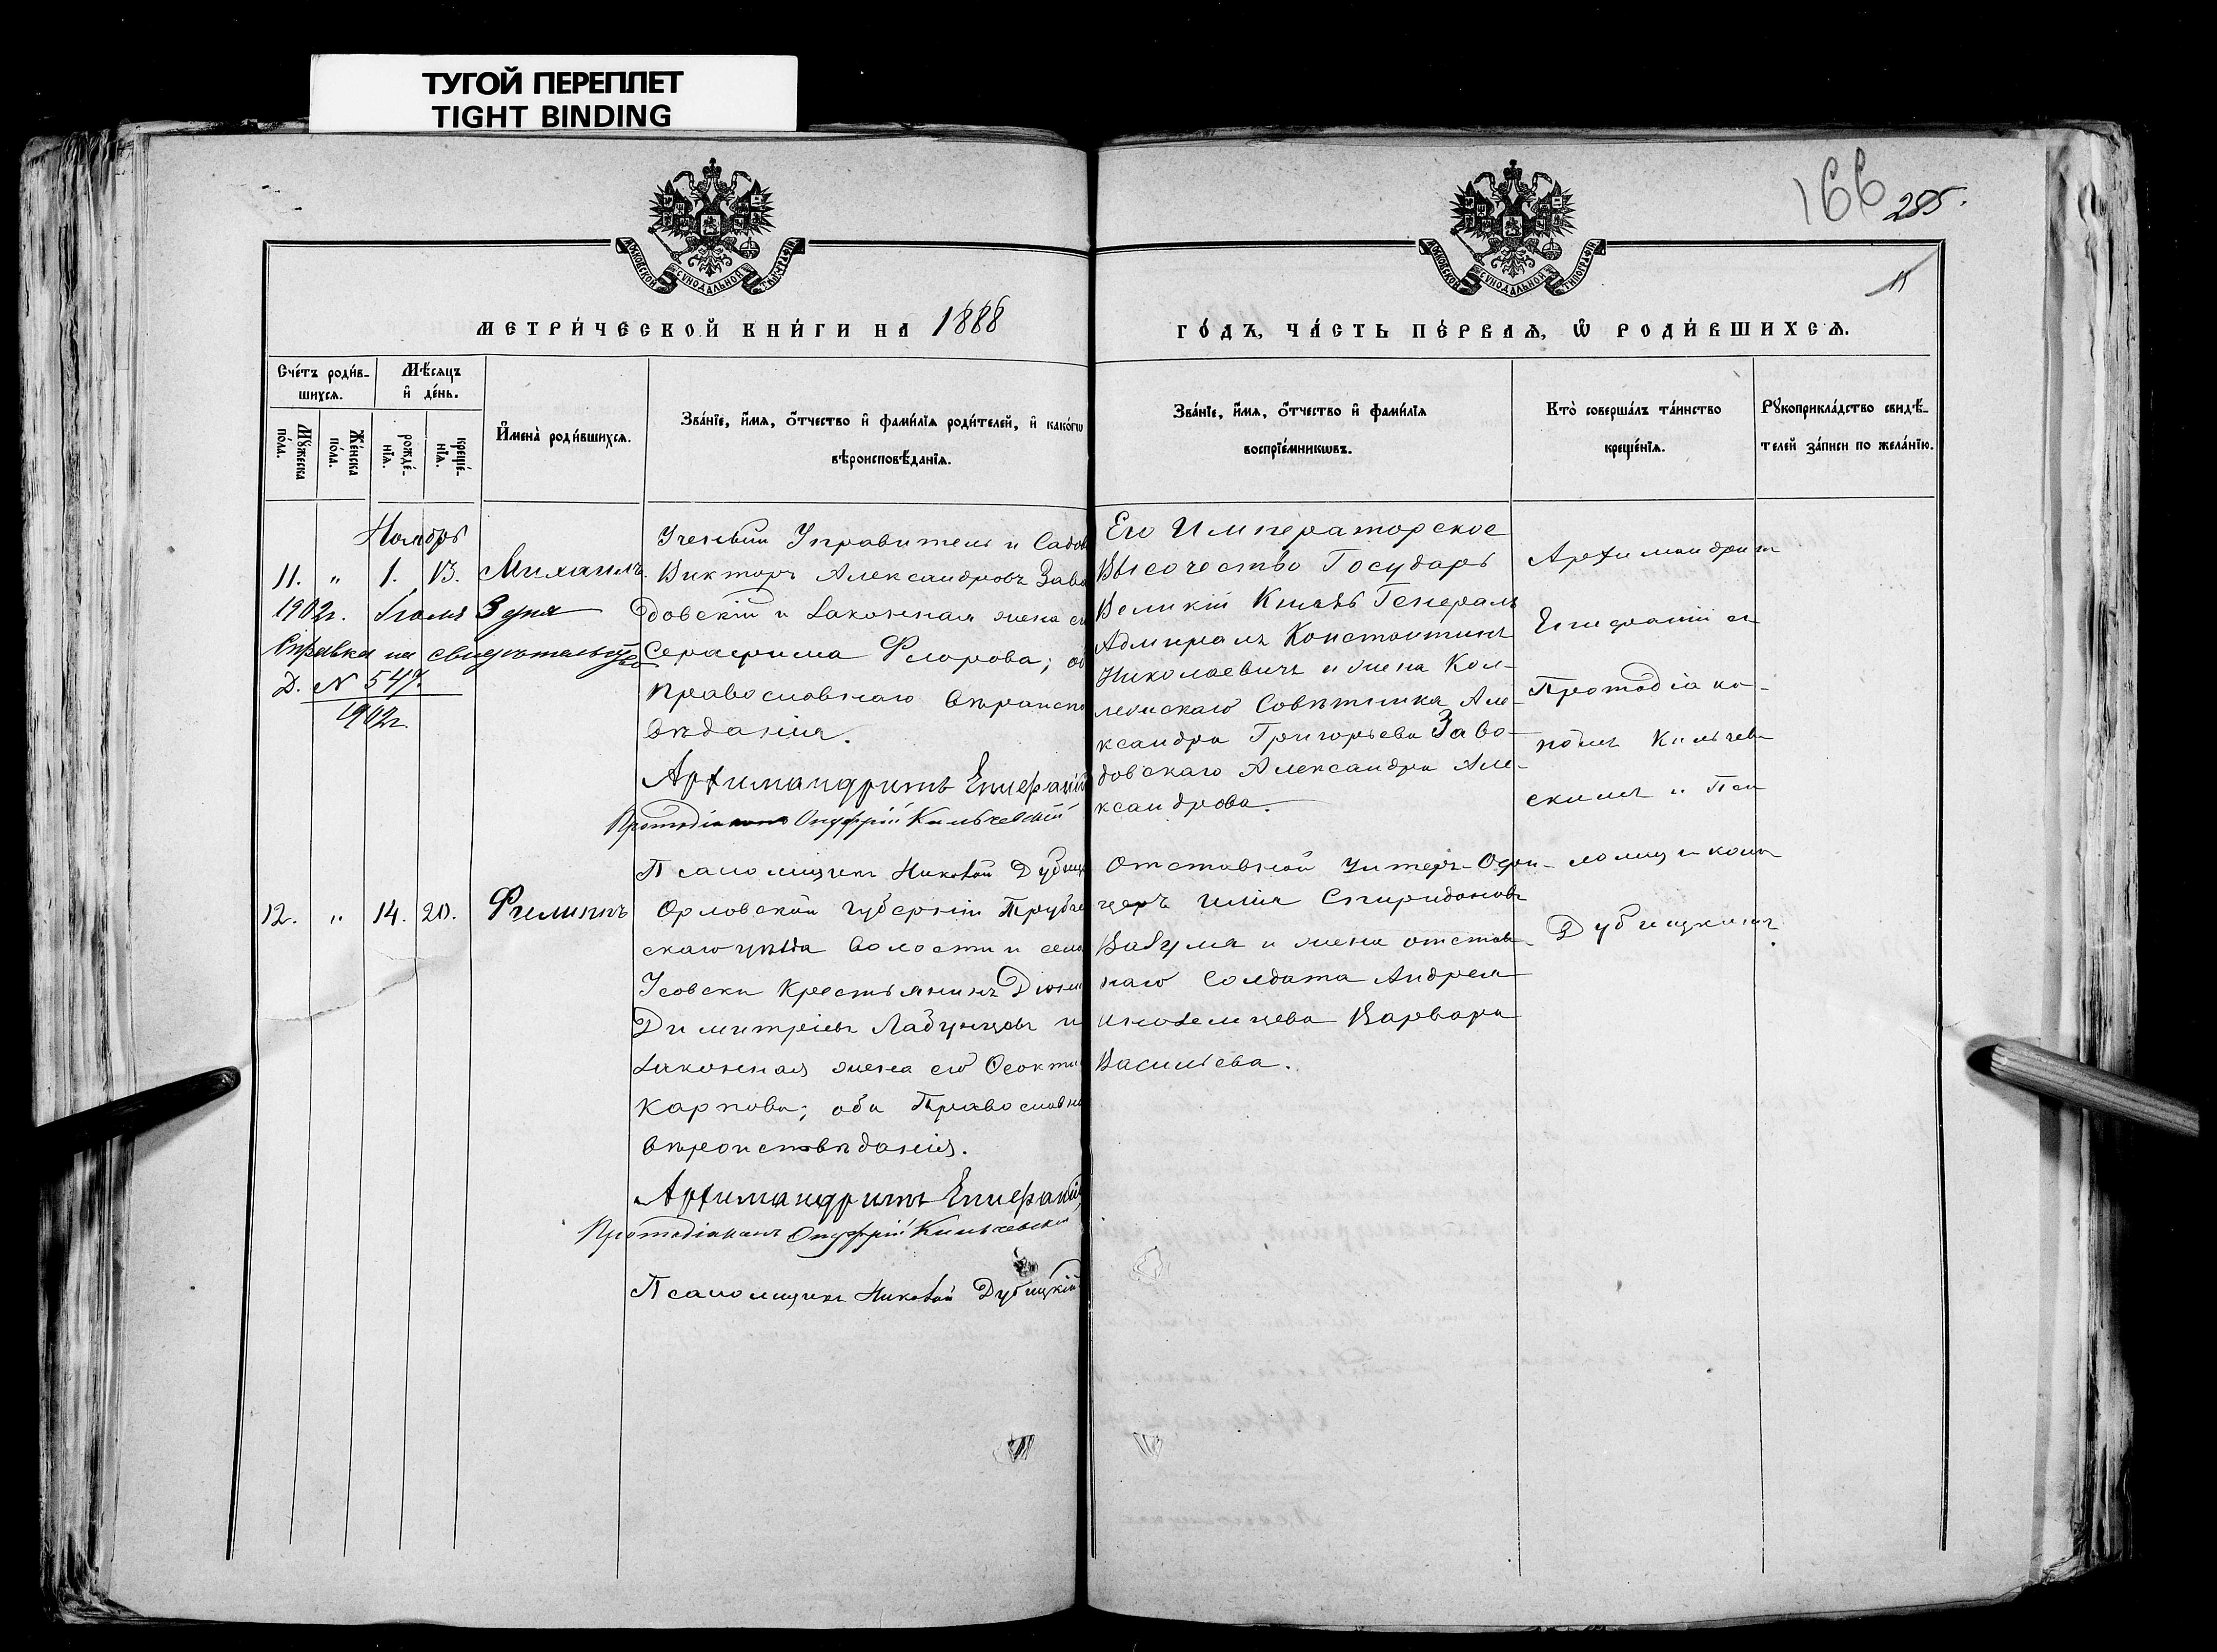 ТУГОЙ ПЕРЕПЛЕТ
TIGHT BINDING
166
285.
11
МОСКОВСКОЙ СѴНОДАЛЬНОЙ ТИПОГРАФІИ
МОСКОВСКОЙ СѴНОДАЛЬНОЙ ТИПОГРАФІИ
МЕТРИ́ЧЕСКОЙ КНИ́ГИ НА 1888
ГО́ДЪ, ЧА́СТЬ ПЕ́РВАЯ, Ѡ РОДИ́ВШИХСЯ.
Сче́тъ роди́в-
шихся.
Му́жеска
по́ла.
Же́нска
по́ла.
Мѣ́сяцъ
и де́нь.
рожде́-
нїя.
креще́-
нїя.
И҆мена̀ роди́вшихся.
Зва́нїе, и҆́мя, ѻ҆́тчество и҆ фами́лїя роди́телей, и҆ како́гѡ
вѣроисповѣ́данїя.
Зва́нїе, и҆́мя, ѻ҆́тчество и҆ фами́лїя
воспрїе́мникѡвъ.
Кто̀ соверша́лъ та́инство
креще́нїя.
Рꙋкоприкла́дство свидѣ́-
телей за́писи по жела́нїю.
Ноябрь
11. " 1. 13. Михаилъ.
1902г. Іюля 3 дня
Справка на свидѣтельство
Д. № 547.
1902г.
Ученый Управитель и Садов
Викторъ Александровъ Заво
довскій и законная жена ег
Серафима Флорова; об
православнаго вѣроиспо
вѣданія.
Архимандритъ Епифаній
Протодіаконъ Онуфрій Кильчевскій
Псаломщикъ Николай Дубицк
Его Императорское
Высочество Государь
Великій Князь Генералъ
Адмиралъ Константинъ
Николаевичъ и жена Кол-
лежскаго Совѣтника Але-
ксандра Григорьева Заво-
довскаго Александра Але-
ксандрова.
Архимандритъ
Епифаній съ
Протодіако-
номъ Кильчев-
скимъ и Пса
ломщикомъ
Дубицкимъ.
12. " 14. 20. Филиппъ
Орловской губерніи Трубче
скаго уѣзда волости и села
Усовски Крестьянинъ Діони
Димитріевъ Лабунцовъ и
законная жена его Феокти
Карпова; оба Православна
вѣроисповѣданія.
Архимандритъ Епифаній
Протодіаконъ Онуфрій Кильчевскій
Псаломщикъ Николай Дубицкій
Отставной Унтеръ-Офи-
церъ Илія Спиридоновъ
и жена отстав-
наго Солдата Андрея
Иноземцева Варвара
Васильева.